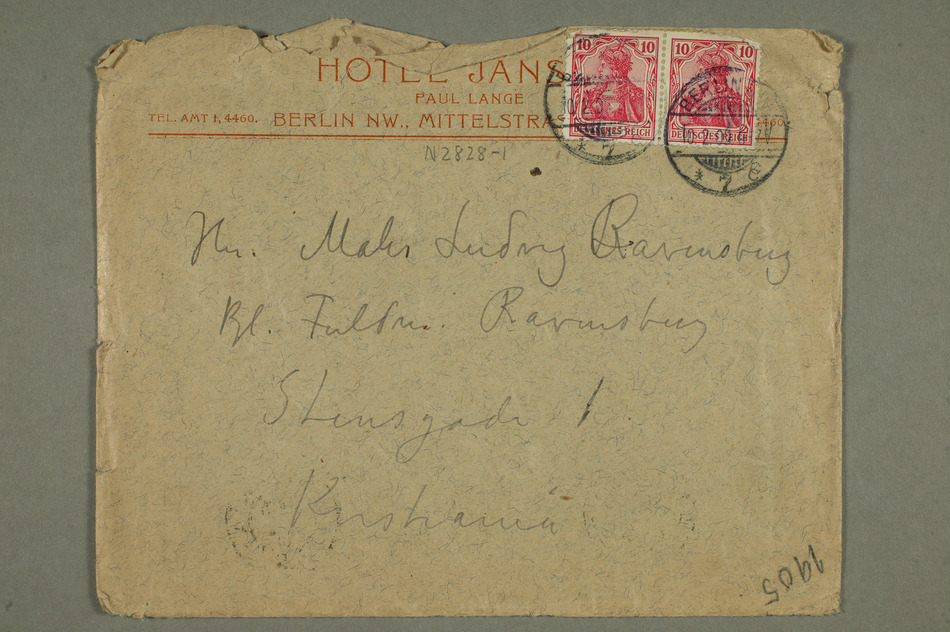 HOTEL JANS
PAUL LANGE
TEL. AMT 1, 4460. BERLIN NW., MITTELSTRAS
N2828-1
10 10
DEUTSCHES REICH
10 10
DEUTSCHES REICH
BERLIN
* 7
Hr. Maler Ludvig Ravensberg
Ravensberg
Stensgade 1
Kristiania
1905